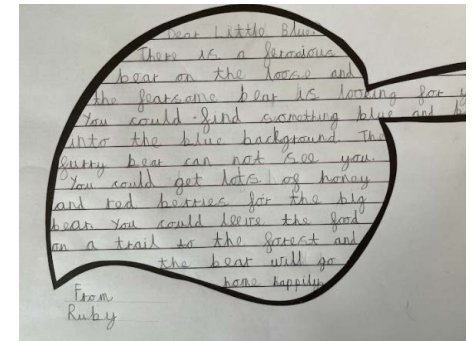 Dear Little Blue,
There is a ferocious
bear on the loose and
the fearsome bear is looking for
You could find something blue and
into the blue background. The
furry bear can not see you.
You could get lots of honey
and red berries for the big
bear You could leeve the food
on a trail to the forest and
the bear will go
home happily
From
Ruby